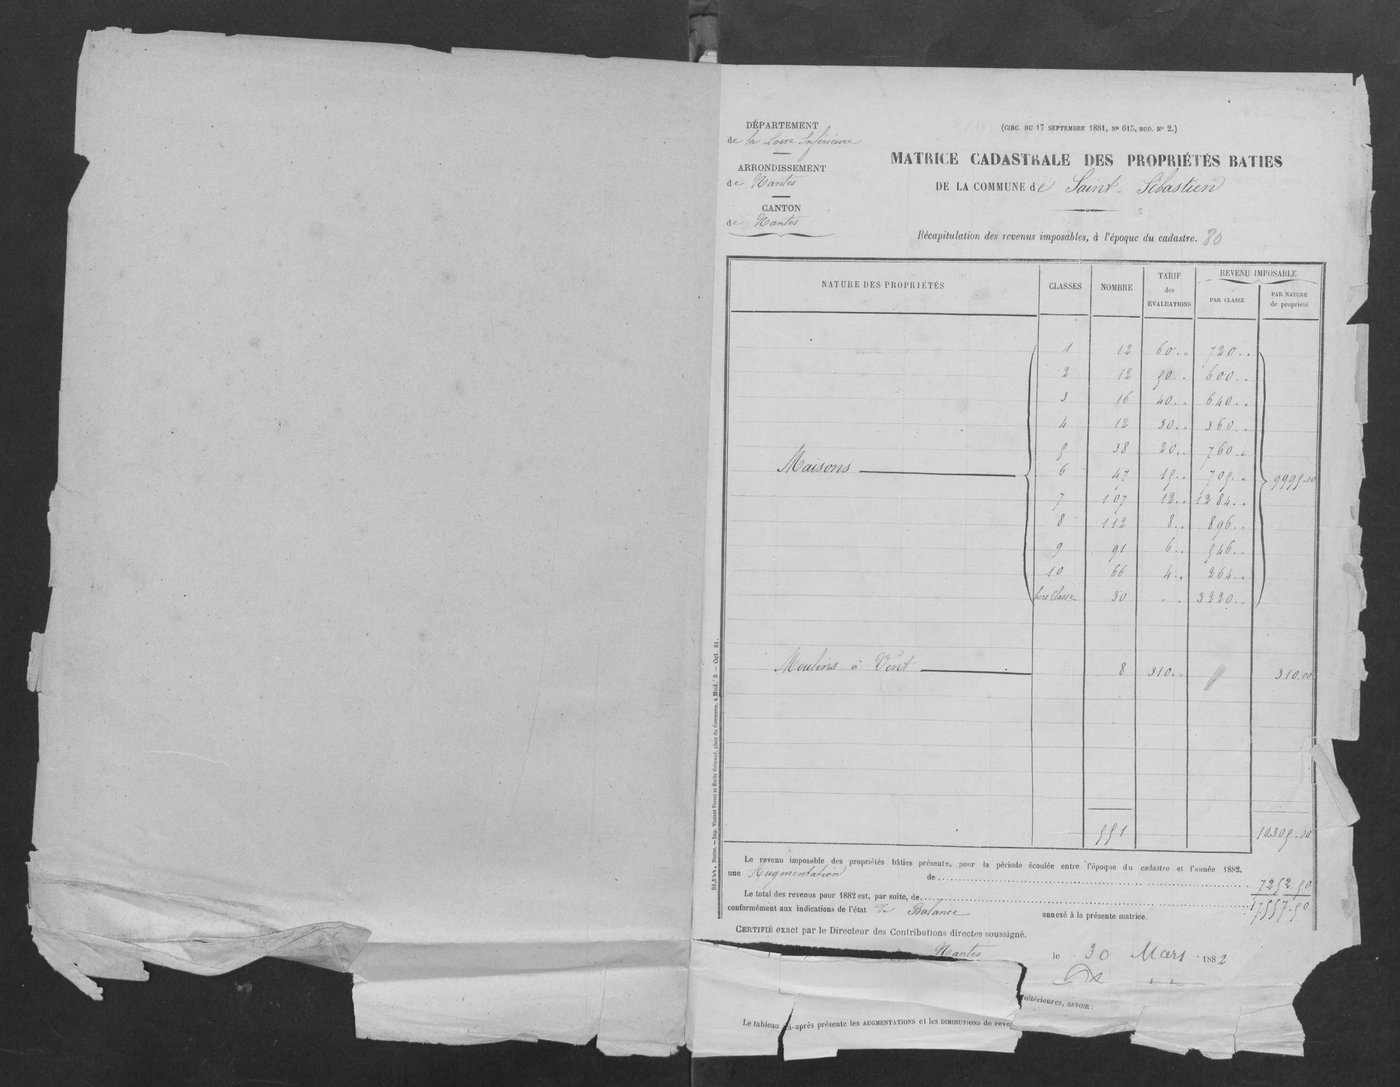 DÉPARTEMENT
de la Loire Inférieure
ARRONDISSEMENT
de Nantes
CANTON
de Nantes
(CIRC. DU 17 SEPTEMBRE 1881, Nº 615, MOD. Nº 2.)
MATRICE CADASTRALE DES PROPRIÉTÉS BATIES
DE LA COMMUNE de Saint-Sébastien
Récapitulation des revenus imposables, à l'époque du cadastre. 80
NATURE DES PROPRIÉTÉS CLASSES NOMBRE TARIF des ÉVALUATIONS REVENU IMPOSABLE
PAR CLASSE PAR NATURE de propriété
1 12 60.. 720..
2 12 50.. 600..
3 16 40.. 640..
4 12 30.. 360..
5 38 20.. 760..
Maisons 6 47 15.. 705.. 9995.00
7 107 12.. 1284..
8 112 8.. 896..
9 91 6.. 546..
10 66 4.. 264..
hors Classe 30 .. 3220..
Moulins à Vent 8 310.. 310.00
551 10305.00
Le revenu imposable des propriétés bâties présente, pour la période écoulée entre l'époque du cadastre et l'année 1882,
une Augmentation de 7252 50
Le total des revenus pour 1882 est, par suite, de 17557.50
conformément aux indications de l'état de Balance annexé à la présente matrice.
CERTIFIÉ exact par le Directeur des Contributions directes soussigné.
Nantes le 30 Mars 1882
ultérieures, SAVOIR:
Le tableau ci-après présente les AUGMENTATIONS et les DIMINUTIONS de reve